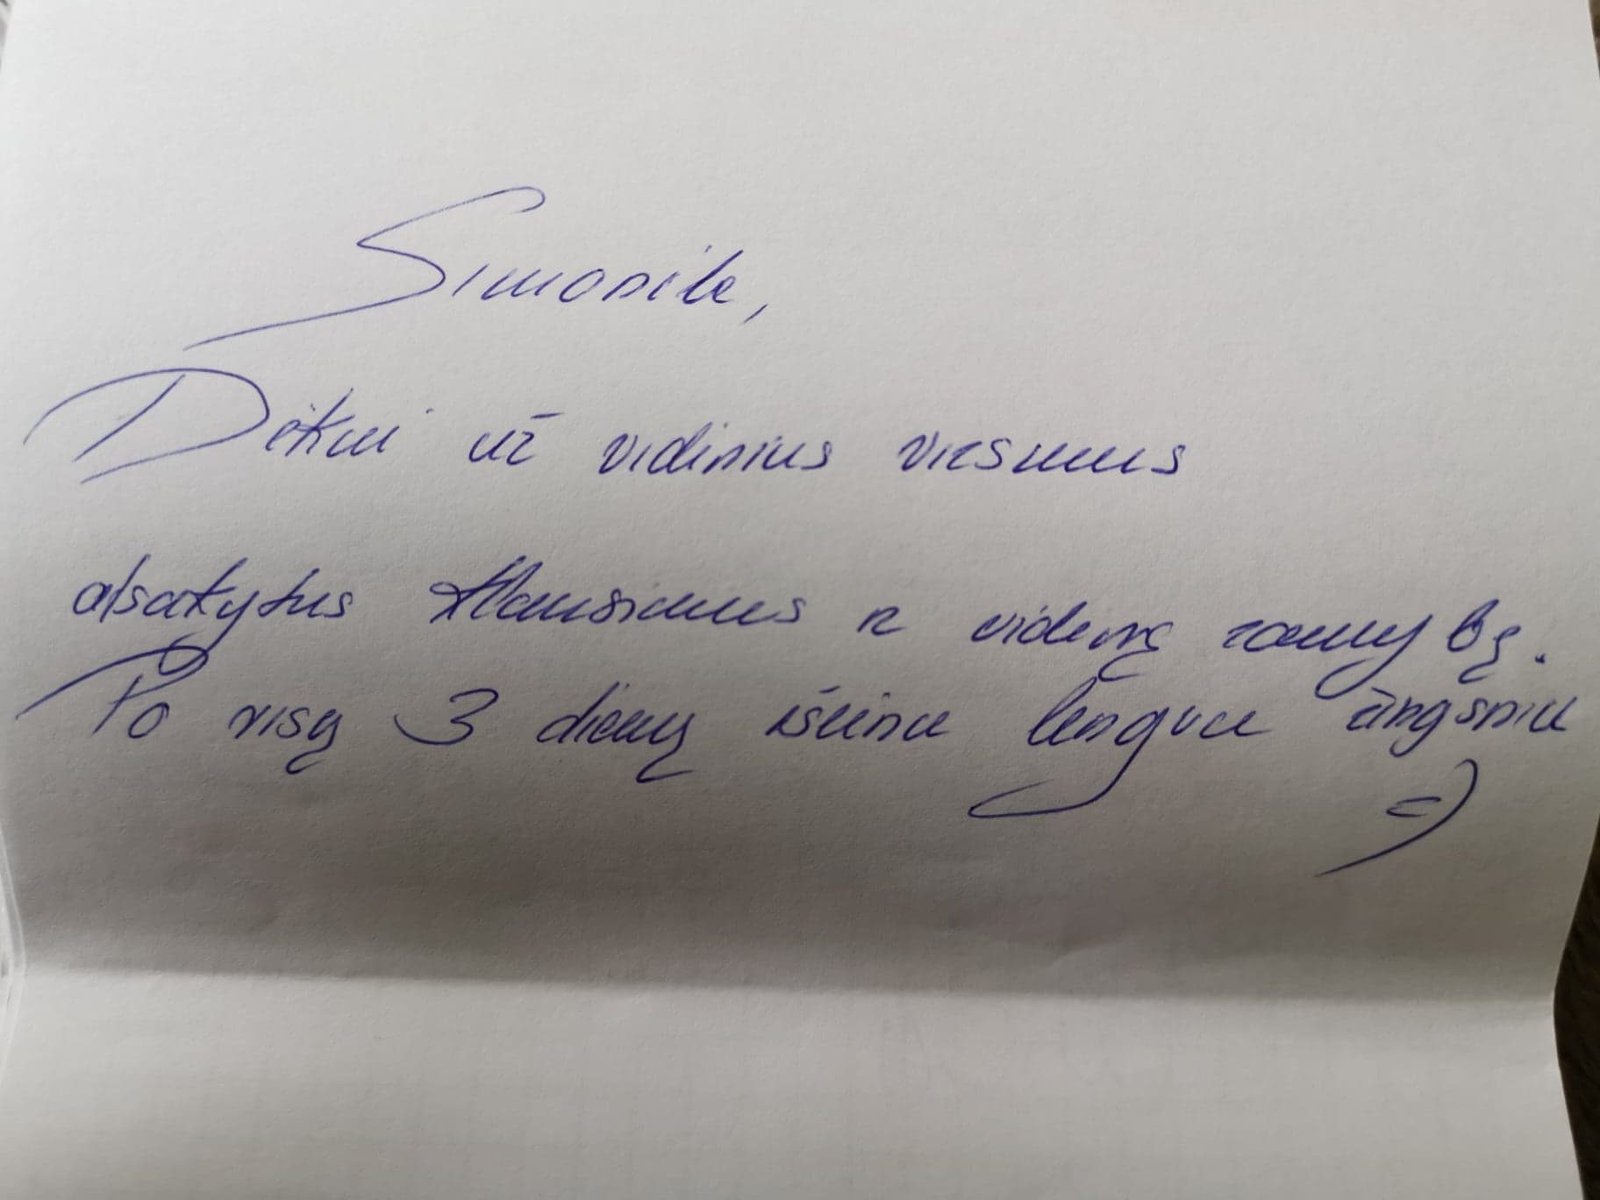 Simonita,
Dėkui už vidinius virsmus
atsakytus klausimus ir vidinę ramybę.
Po visų 3 dienų išeinu lengvu žingsniu
=)